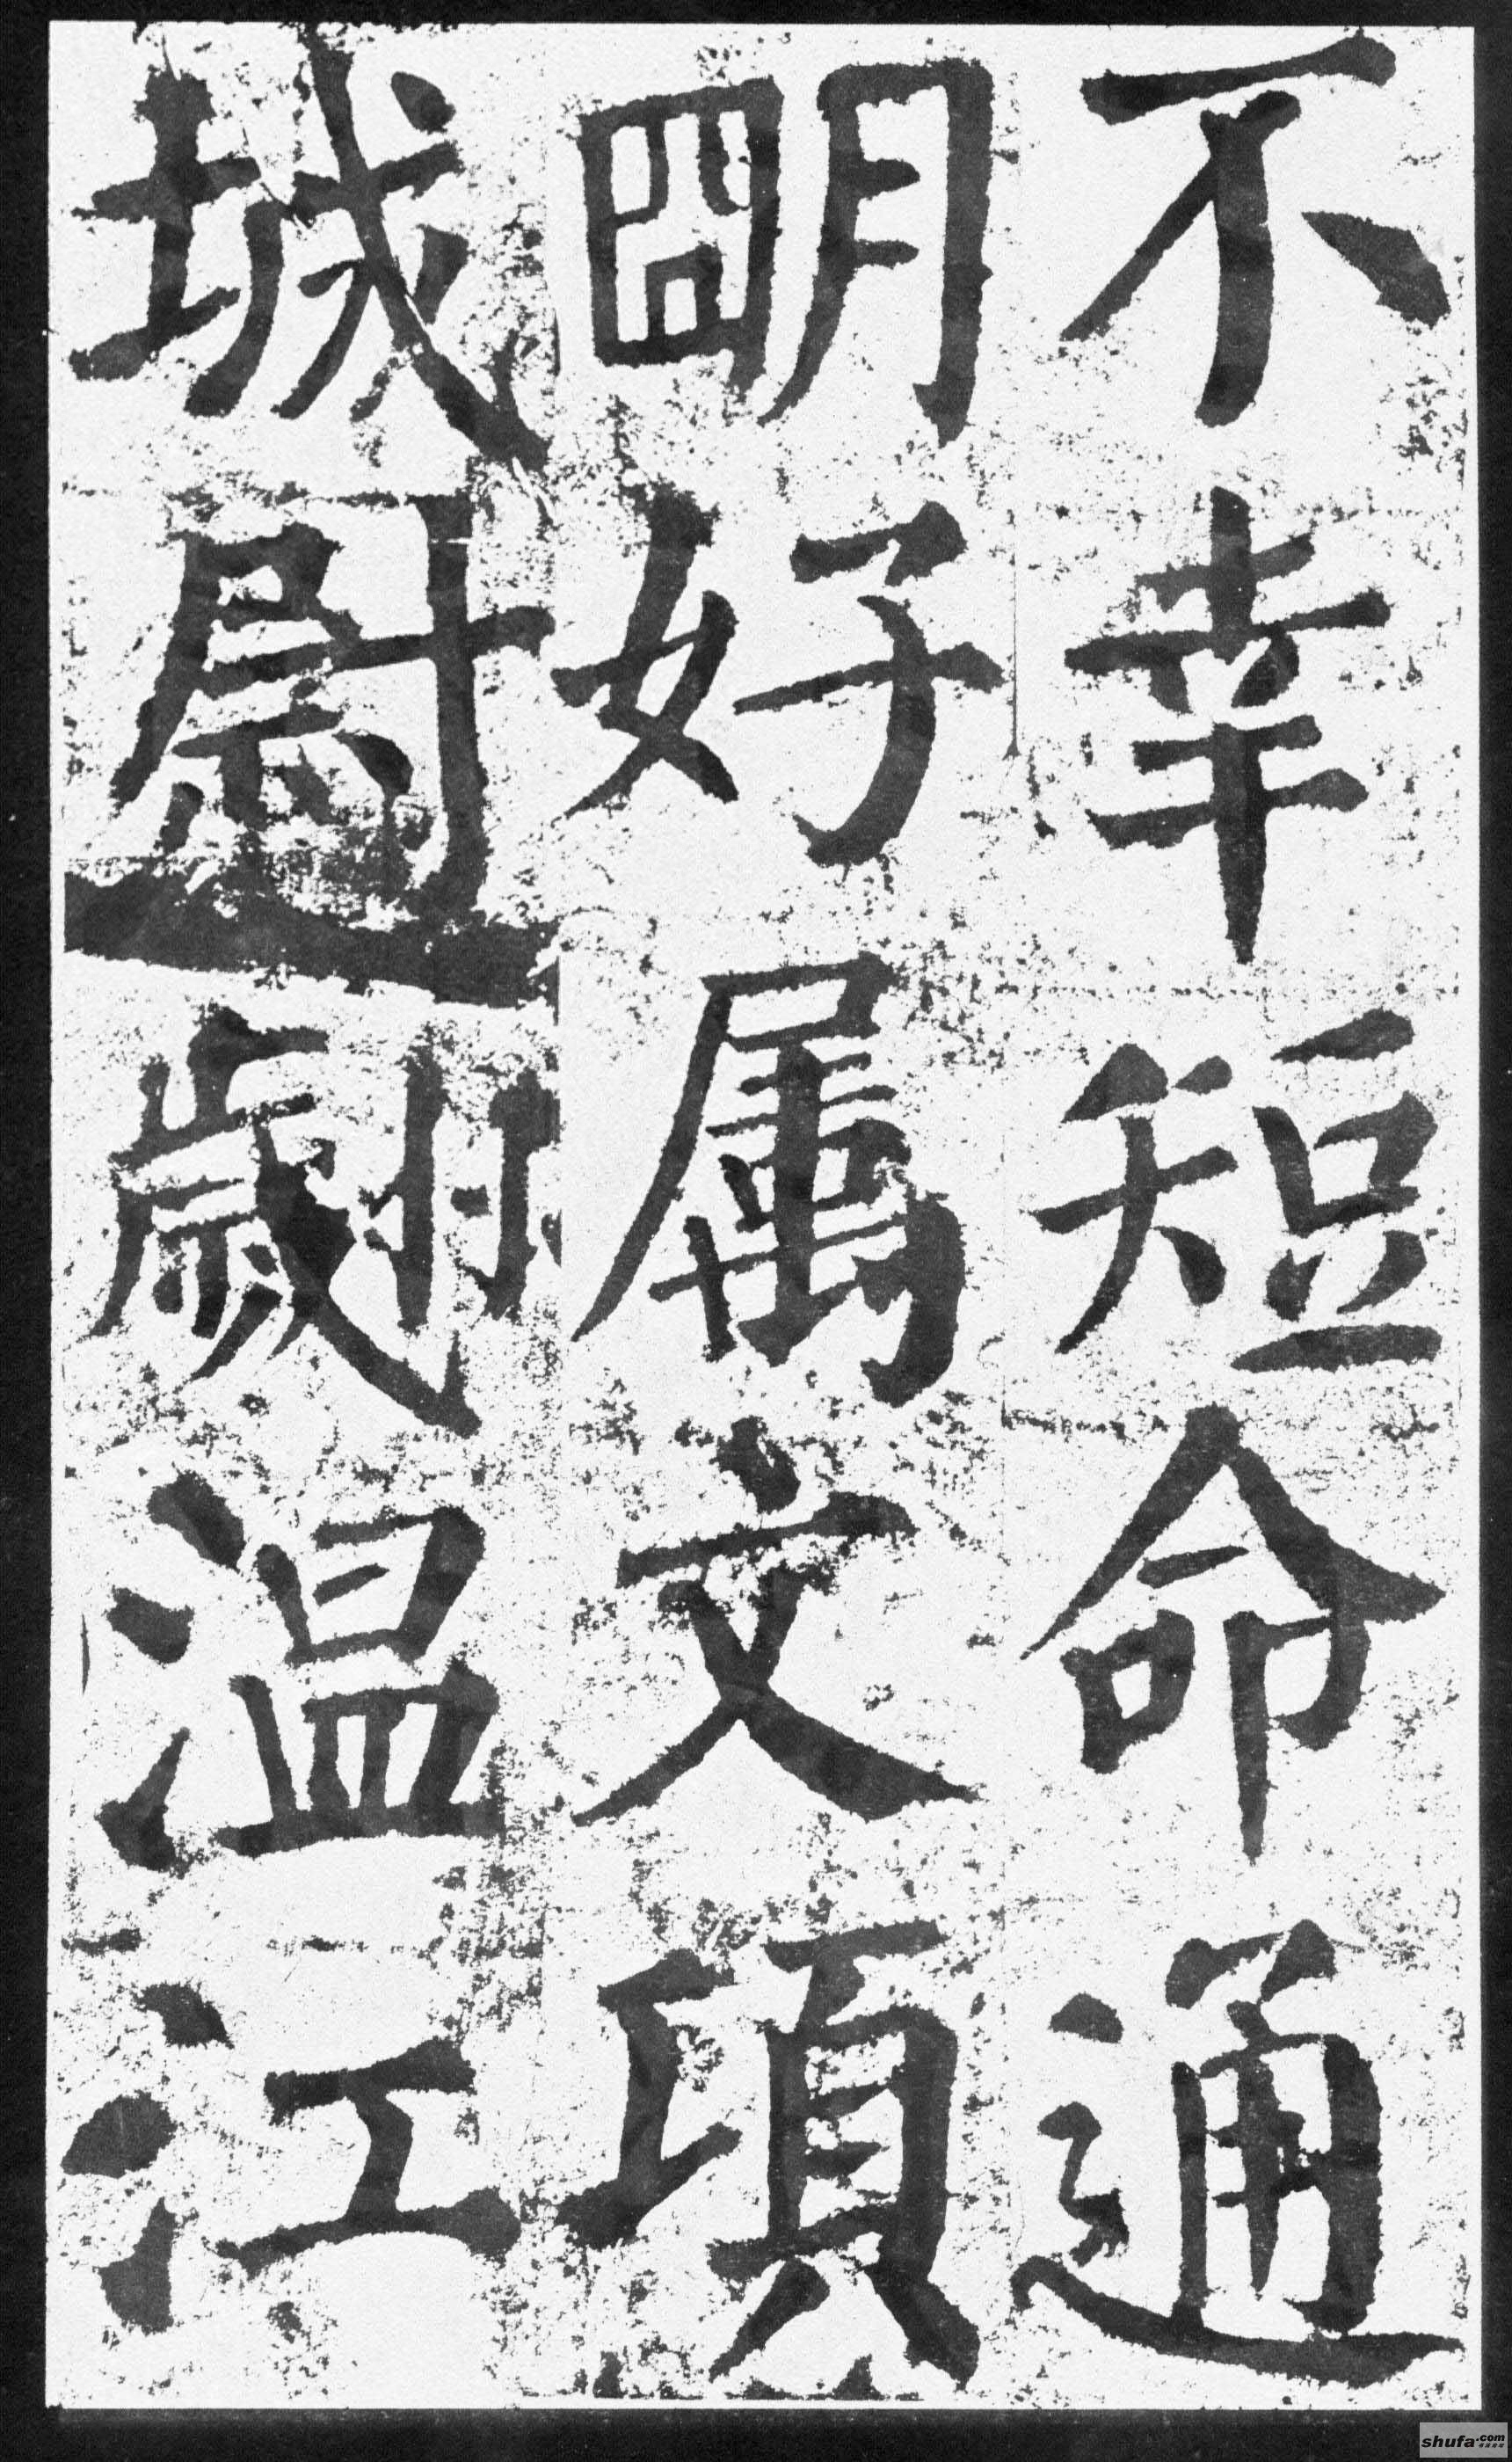 不幸短命通
明好属文項
城尉劌温江
shufa.com